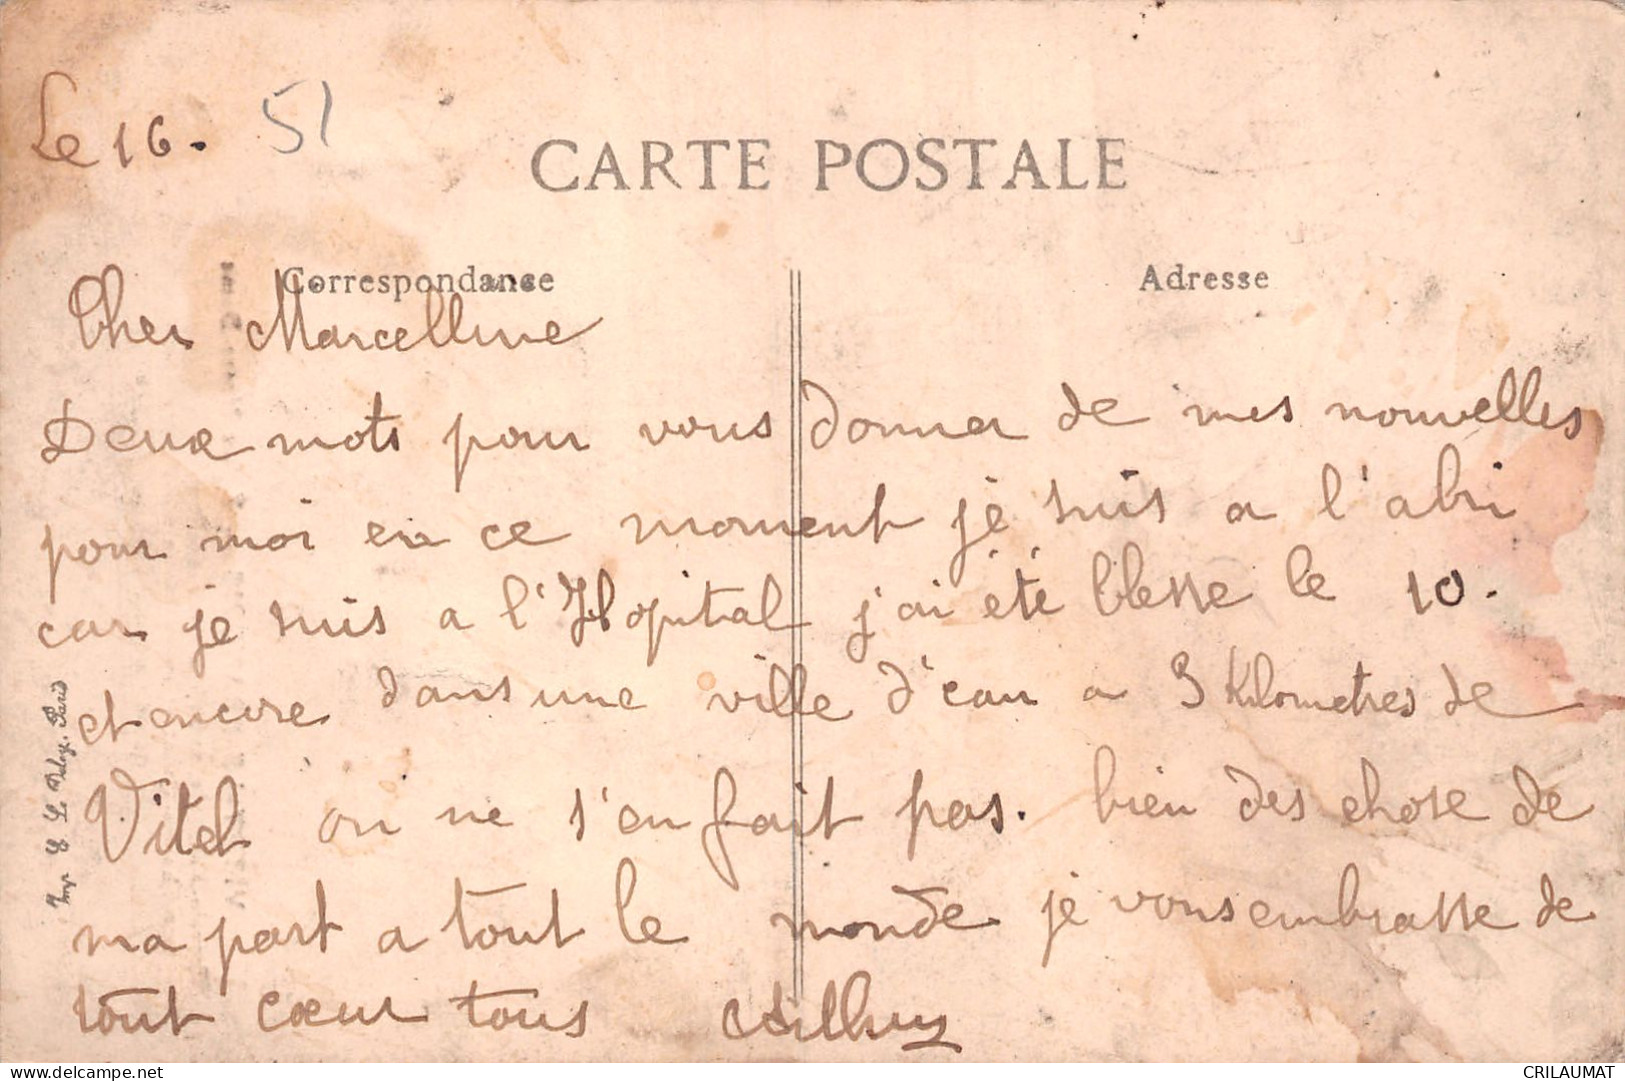 Le 16. 51
CARTE POSTALE
Correspondance
Adresse
Cher Marcelline
Deux mots pour vous donner de mes nouvelles
pour moi en ce moment je suis a l'abri
car je suis a l'Hopital j'ai été blesse le 10.
et encore dans une ville d'eau a 3 kilometres de
Vitel on ne s'en fait pas. bien des chose de
ma part a tout le monde je vous embrasse de
tout cœur tous
Imp. Paris
delcampe.net
CRILAUMAT